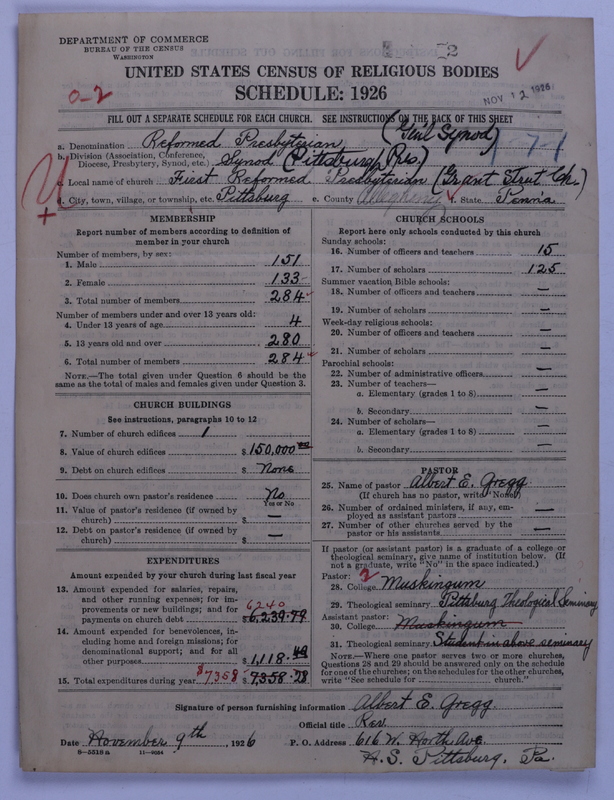 DEPARTMENT OF COMMERCE
BUREAU OF THE CENSUS
WASHINGTON
UNITED STATES CENSUS OF RELIGIOUS BODIES
SCHEDULE: 1926
0-2
NOV 12 1926
FILL OUT A SEPARATE SCHEDULE FOR EACH CHURCH. SEE INSTRUCTIONS ON THE BACK OF THIS SHEET
a. Denomination Reformed Presbyterian (Gen'l Synod)
1-7-1
b. Division (Association, Conference, Diocese, Presbytery, Synod, etc.) Synod (Pittsburgh Pres.)
c. Local name of church First Reformed Presbyterian (Grant Street Ch.)
d. City, town, village, or township, etc. Pittsburg e. County Allegheny f. State Penna
MEMBERSHIP
Report number of members according to definition of
member in your church
Number of members, by sex:
1. Male 151
2. Female 133
3. Total number of members 284
Number of members under and over 13 years old:
4. Under 13 years of age 4
5. 13 years old and over 280
6. Total number of members 284
NOTE.—The total given under Question 6 should be
the same as the total of males and females given under Question 3.
CHURCH BUILDINGS
See instructions, paragraphs 10 to 12
7. Number of church edifices 1
8. Value of church edifices $150,000.00
9. Debt on church edifices $ None
10. Does church own pastor's residence No
Yes or No
11. Value of pastor's residence (if owned by
church) $ —
12. Debt on pastor's residence (if owned by
church) $ —
EXPENDITURES
Amount expended by your church during last fiscal year
13. Amount expended for salaries, repairs,
and other running expenses; for im-
provements or new buildings; and for
payments on church debt $6,239.79
6240
14. Amount expended for benevolences, in-
cluding home and foreign missions; for
denominational support; and for all
other purposes 1,118.49
15. Total expenditures during year $7358 $7358.28
CHURCH SCHOOLS
Report here only schools conducted by this church
Sunday schools:
16. Number of officers and teachers 15
17. Number of scholars 125
Summer vacation Bible schools:
18. Number of officers and teachers —
19. Number of scholars —
Week-day religious schools:
20. Number of officers and teachers —
21. Number of scholars —
Parochial schools:
22. Number of administrative officers —
23. Number of teachers—
a. Elementary (grades 1 to 8) —
b. Secondary —
24. Number of scholars—
a. Elementary (grades 1 to 8) —
b. Secondary —
PASTOR
25. Name of pastor Albert E. Gregg
(If church has no pastor, write "None")
26. Number of ordained ministers, if any, em-
ployed as assistant pastors —
27. Number of other churches served by the
pastor or his assistants —
If pastor (or assistant pastor) is a graduate of a college or
theological seminary, give name of institution below. (If
not a graduate, write "No" in the space indicated.)
Pastor:
28. College 2 Muskingum
29. Theological seminary Pittsburg Theological Seminary
Assistant pastor:
30. College Muskingum
31. Theological seminary Student in above seminary
NOTE.—Where one pastor serves two or more churches,
Questions 28 and 29 should be answered only on the schedule
for one of the churches; on the schedules for the other churches,
write "See schedule for church."
Signature of person furnishing information Albert E. Gregg
Official title Rev.
Date November 9th, 1926 P. O. Address 616 W. North Ave.
N. S. Pittsburg, Pa.
8—5518 a 11—9064